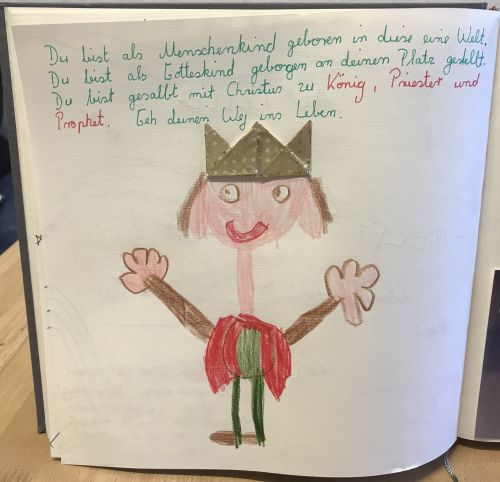 Du bist als Menschenkind geboren in diese eine Welt.
Du bist als Gotteskind geborgen an deinen Platz gestellt.
Du bist gesalbt mit Christus zu König, Priester und
Prophet. Geh deinen Weg ins Leben.